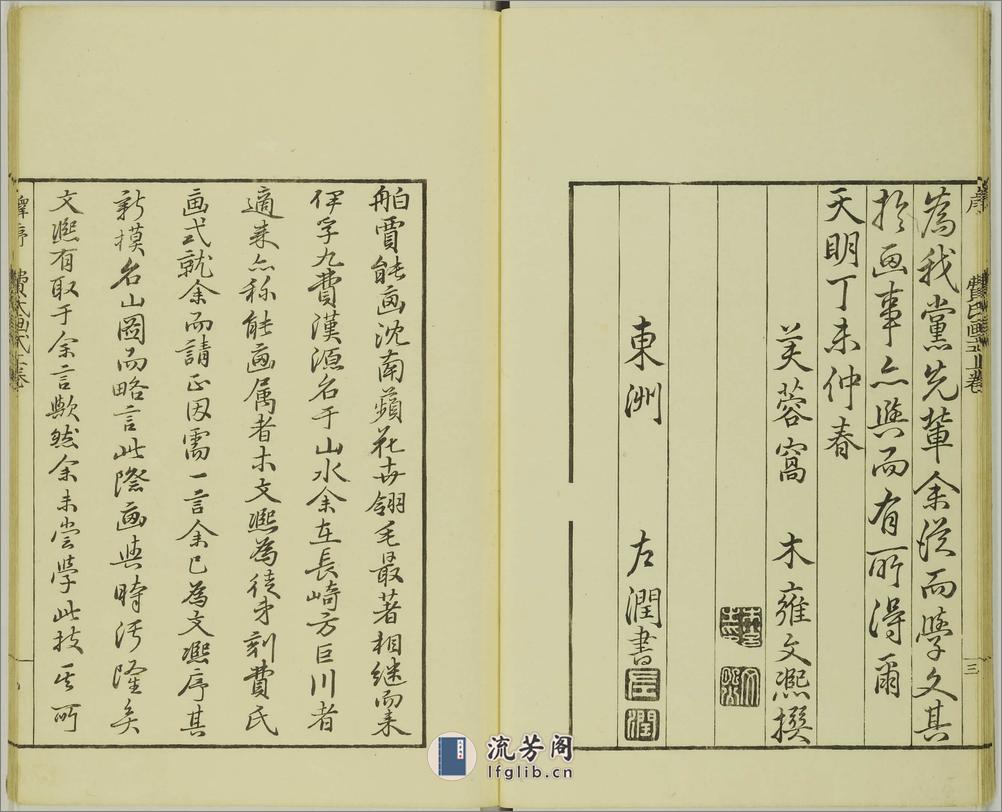 序 費氏畫式上卷 三
為我黨先輩余從而學文其
於画事亦與而有所得爾
天明丁未仲春
芙蓉窩 木雍文熈撰
東洲 左潤書
舶賈能画沈南蘋花卉翎毛最著相継而来
伊孚九費漢源名于山水余在長崎方巨川者
適来亦称能画属者木文熈為徒弟刻費氏
画式就余而請正因需一言余已為文熈序其
新模名山圖而略言此際画與時汚隆矣
文熈有取于余言歟然余未嘗学此技其所
序 費氏畫式上卷
流芳阁
lfglib.cn